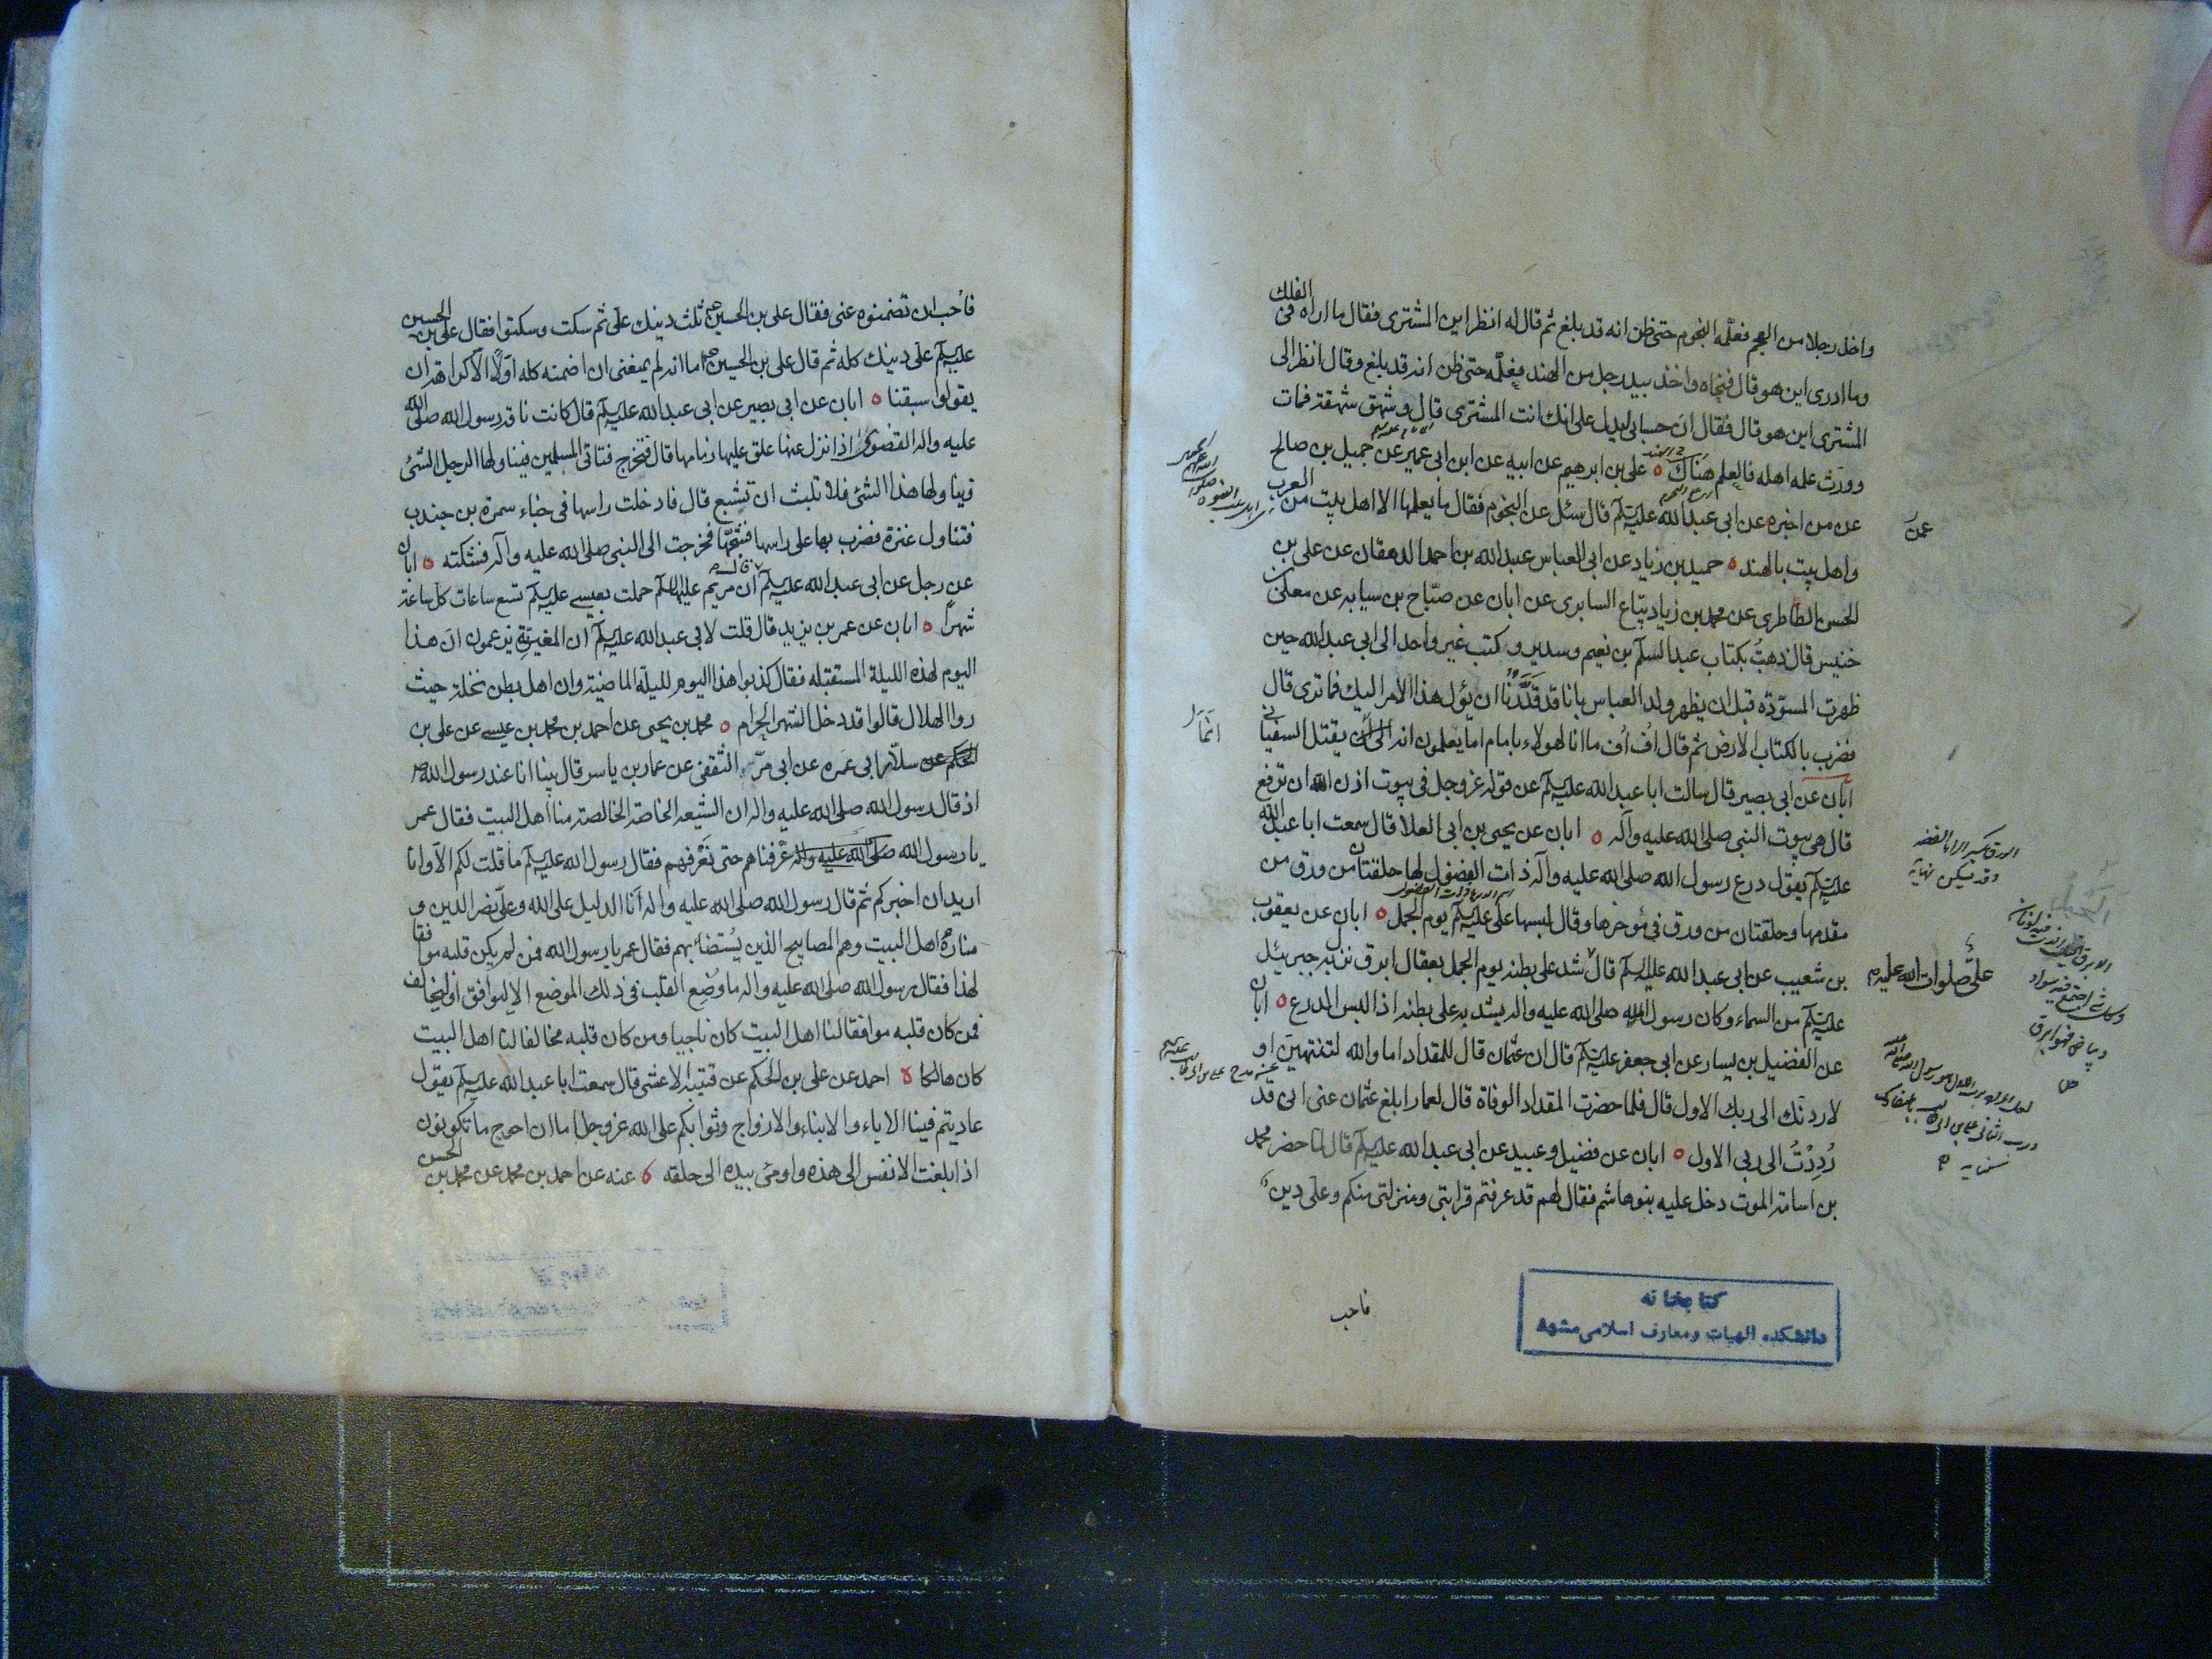 واخذ رجلا من العجم فعلّمه النجوم حتى ظن انه قد بلغ ثم قال له انظر اين المشترى فقال ما اراه فى الفلك
وما ادرى اين هو قال فنحاه واخذ بيد رجل من الهند فعلّمه حتى ظن انه قد بلغ وقال انظر الى
المشترى اين هو قال فقال ان حسابى ليدل على انك انت المشترى قال وشهق شهقة فمات
وورث علمه اهله فالعلم هناك ه على بن ابرهيم عن ابيه عن ابن ابى عمير عن جميل بن صالح
عن من اخبره عن ابى عبدالله عليه السلام قال سئل عن النجوم فقال ما يعلمها الا اهل بيت من العرب
واهل بيت بالهند ه حميد بن زياد عن ابى العباس عبيد الله بن احمد الدهقان عن على بن
الحسن الطاطرى عن محمد بن زياد بيّاع السابرى عن ابان عن صبّاح بن سيابه عن معلى بن
خنيس قال ذهبتُ بكتاب عبد السلم بن نعيم وسدير وكتب غير واحد الى ابى عبدالله حين
ظهرت المسوّدة قبل ان يظهر ولد العباس بانا قد قدّرنا ان يؤل هذا الامر اليك فما ترى قال
فضرب بالكتاب الارض ثم قال اُف اُف ما انا لهولاء بامام اما يعلمون انه يقتل السفيانى
ابان عن ابى بصير قال سالت ابا عبدالله عليه السلام عن قوله عزوجل فى بيوت اذن الله ان ترفع
قال هى بيوت النبى صلى الله عليه وآله ه ابان عن يحيى بن ابى العلا قال سمعت ابا عبد الله
عليه السلام يقول درع رسول الله صلى الله عليه وآله ذات الفضول لها حلقتان من ورق من
مقدمها وحلقتان من ورق فى مؤخرها وقال لبسها على عليه السلام يوم الجمل ه ابان عن يعقوب
بن شعيب عن ابى عبد الله عليه السلام قال شد على بطنه يوم الجمل بعقال ابرق نزل به جبرئيل
عليه السلام من السماء وكان رسول الله صلى الله عليه واله يشد به على بطنه اذا لبس الدرع ه ابان
عن الفضيل بن يسار عن ابى جعفر عليه السلام قال ان عثمان قال للمقداد اما والله لتنتهين او
لاردنّك الى ربك الاول قال فلما حضرت المقداد الوفاة قال لعمار ابلغ عثمان عنى انى قد
رُدِدْتُ الى ربى الاول ه ابان عن فضيل وعبيد عن ابى عبد الله عليه السلام قال لمّا حضر محمد
بن اسامة الموت دخل عليه بنو هاشم فقال لهم قد عرفتم قرابتى ومنزلتى منكم وعلى دين
فاحب
عمن
على صلوات الله عليه
كتابخانه
دانشكده الهيات ومعارف اسلامى مشهد
فأحب ان تضمنوه عنى فقال على بن الحسين ثلث دينك علىّ ثم سكت وسكتوا فقال على بن الحسين
عليه السلام علىّ دينك كله ثم قال على بن الحسين اما انه لم يمنعنى ان اضمنه كله اوّلا الّا كراهة ان
يقولوا سبقنا ه ابان عن ابى بصير عن ابى عبد الله عليه السلام قال كانت ناقة رسول الله صلى الله
عليه واله القصوى اذا نزل عنها علق عليها زمامها قال فتخرج فتاتى المسلمين فيناولها الرجل الشئ
ويناولها هذا الشئ فلا تلبث ان تشبع قال فادخلت راسها فى خباء سمرة بن جندب
فتناول عنزة فضرب بها على راسها فشجّها فخرجت الى النبى صلى الله عليه وآله فشكته ه ابان
عن رجل عن ابى عبد الله عليه السلام قال ان مريم عليها السلم حملت بعيسى عليه السلام تسع ساعات كل ساعة
شهرًا ه ابان عن عمر بن يزيد قال قلت لابى عبد الله عليه السلام ان المغيريّة يزعمون ان هذا
اليوم لهذه الليلة المستقبله فقال كذبوا هذا اليوم لليلة الماضية وان اهل بطن نخلة حيث
رواا الهلال قالوا قد دخل الشهر الحرام ه محمد بن يحيى عن احمد بن محمد بن عيسى عن على بن
الحكم عن سلام ابى عمره عن ابى مرّ الثقفى عن عمار بن ياسر قال بينا انا عند رسول الله
اذ قال رسول الله صلى الله عليه واله ان الشيعه الخاصة الخالصة منا اهل البيت فقال عمر
يا رسول الله صلى الله عليه واله عرّفناهم حتى نعرفهم فقال رسول الله عليه السلام ما قلت لكم الّا وانا
اريد ان اخبركم ثم قال رسول الله صلى الله عليه واله انا الدليل على الله وعلىّ نصر الدين و
مناره اهل البيت وهم المصابيح الذين يُستضاء بهم فقال عمر يا رسول الله فمن لم يكن قلبه موافقا
لهذا فقال رسول الله صلى الله عليه واله ما وضِع القلب فى ذلك الموضع الا ليوافق او ليخالف
فمن كان قلبه موافقا لنا اهل البيت كان ناجيا ومن كان قلبه مخالفا لنا اهل البيت
كان هالكا ه احمد عن على بن الحكم عن قتيبة الاعشى قال سمعت ابا عبد الله عليه السلام يقول
عاديتم فينا الاباء والابناء والازواج وثوابكم على الله عزوجل اما ان احوج ما تكونون
اذا بلغت الانفس الى هذه واومئ بيده الى حلقه ه عنه عن احمد بن محمد عن محمد بن الحسن